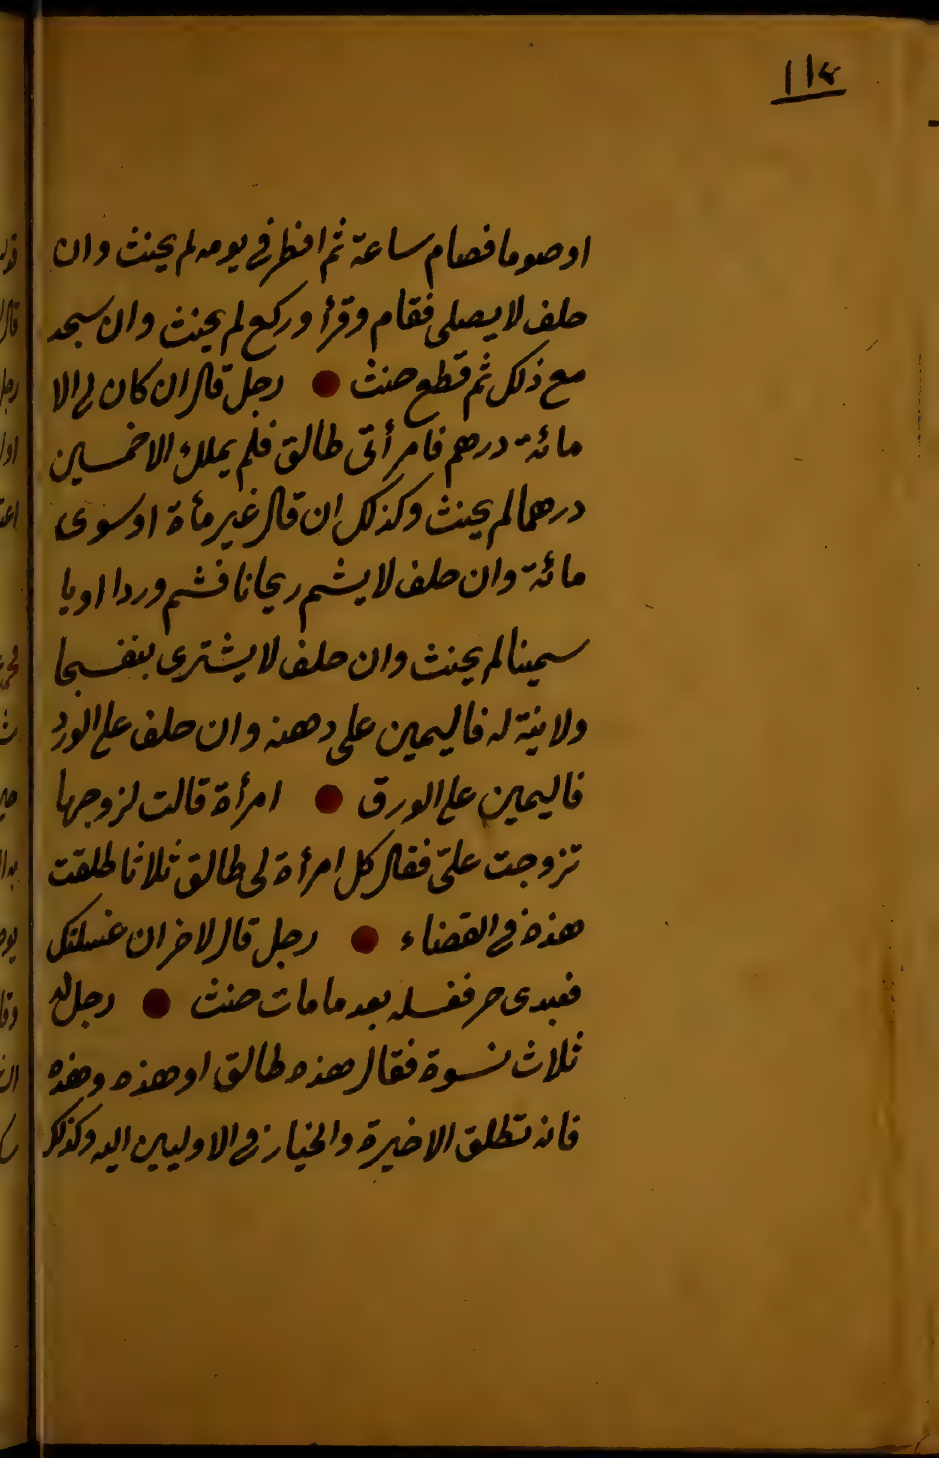 ١١٤
او صوما فصام ساعة ثم افطر في يومه لم يحنث وان
حلف لا يصلى فقام وقرأ وركع لم يحنث وان سجد
مع ذلك ثم قطع حنث ● رجل قال ان كان لى الا
مائة درهم فامرأتى طالق فلم يملك الا خمسين
درهما لم يحنث وكذلك ان قال غير مأة او سوى
مائة وان حلف لا يشم ريحانا فشم وردا او يا
سمينا لم يحنث وان حلف لا يشترى بنفسجا
ولا نية له فاليمين على دهنه وان حلف على الورد
فاليمين على الورق ● امرأة قالت لزوجها
تزوجت علىّ فقال كل امرأة لى طالق ثلاثا طلقت
هذه في القضاء ● رجل قال لاخر ان غسلتك
فعبدى حر فغسله بعد ما مات حنث ● رجل له
ثلاث نسوة فقال هذه طالق او هذه وهذه
فانه تطلق الاخيرة والخيار في الاوليين اليه وكذلك